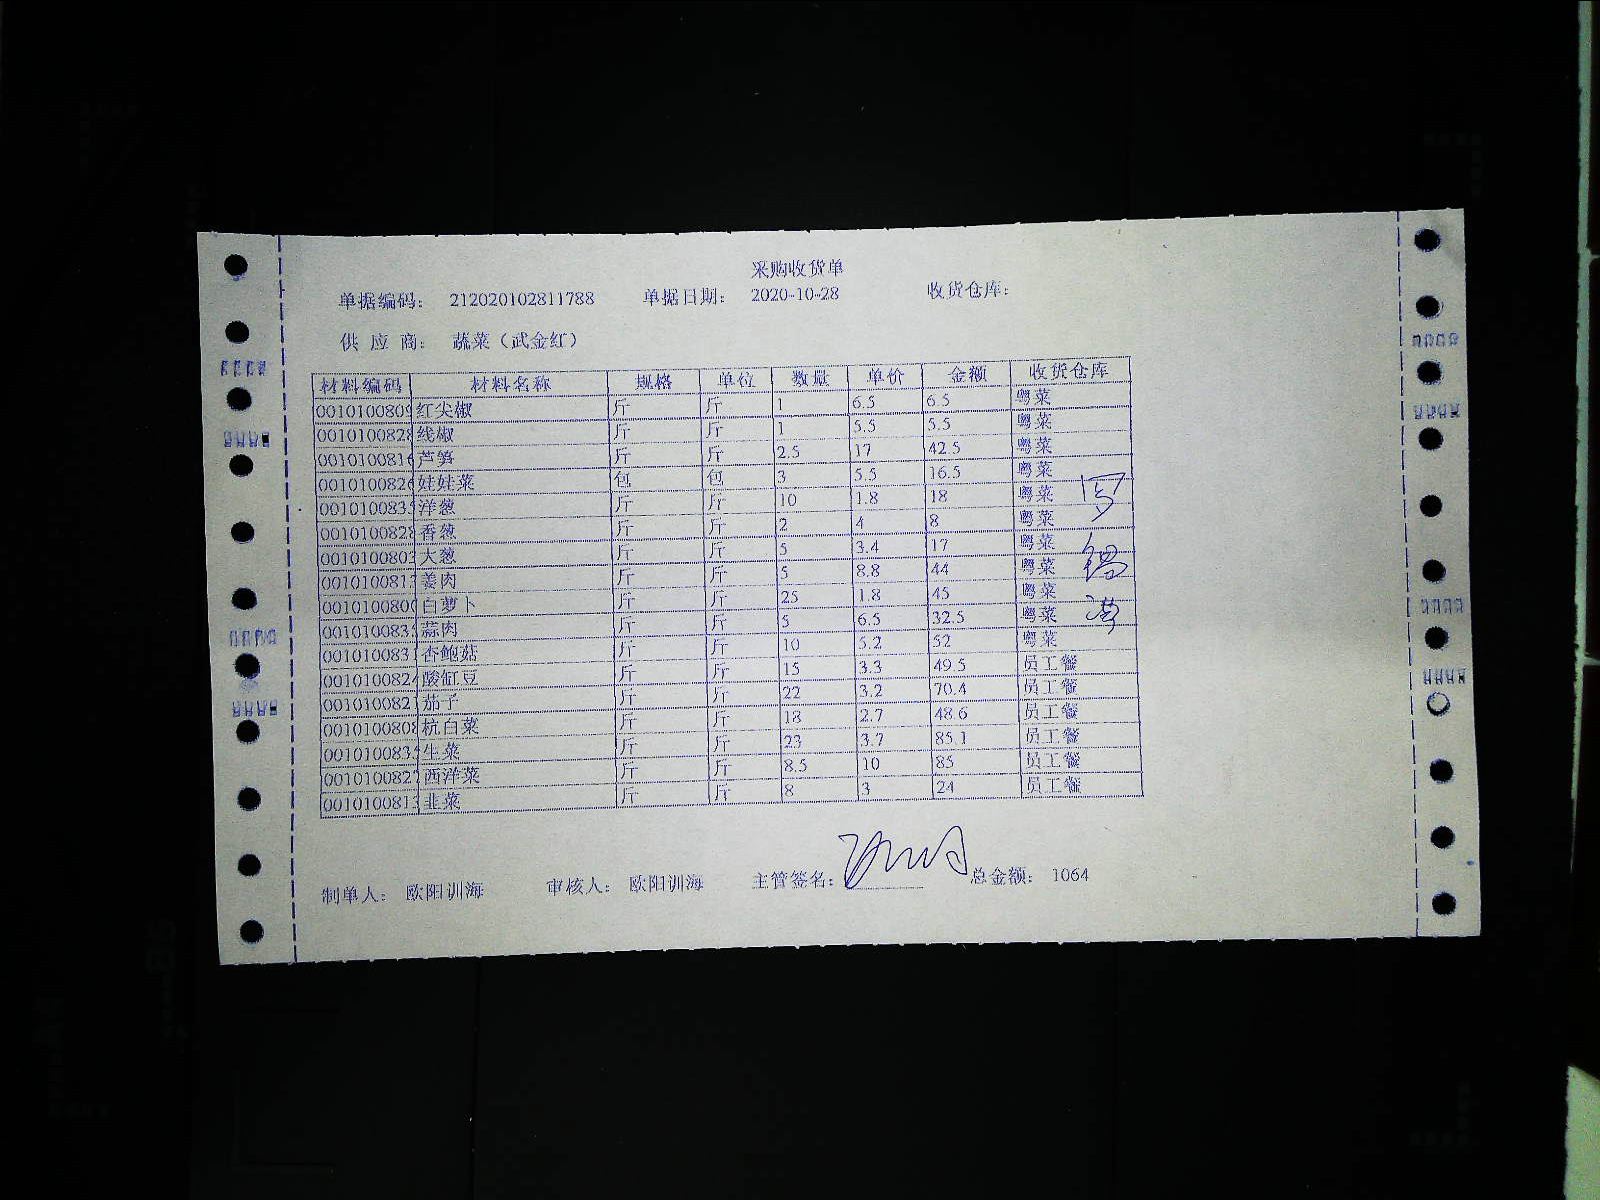 采购收货单
单据编码： 212020102811788 单据日期： 2020-10-28 收货仓库：
供 应 商： 蔬菜（武金红）
材料编码 材料名称 规格 单位 数量 单价 金额 收货仓库
0010100809 红尖椒 斤 斤 1 6.5 6.5 粤菜
0010100828 线椒 斤 斤 1 5.5 5.5 粤菜
0010100816 芦笋 斤 斤 2.5 17 42.5 粤菜
0010100826 娃娃菜 包 包 3 5.5 16.5 粤菜
001010083 洋葱 斤 斤 10 1.8 18 粤菜
0010100828 香葱 斤 斤 2 4 8 粤菜
0010100803 大葱 斤 斤 5 3.4 17 粤菜
001010081 姜肉 斤 斤 5 8.8 44 粤菜
0010100800 白萝卜 斤 斤 25 1.8 45 粤菜
001010083 蒜肉 斤 斤 5 6.5 32.5 粤菜
001010083 杏鲍菇 斤 斤 10 5.2 52 粤菜
001010082 酸缸豆 斤 斤 15 3.3 49.5 员工餐
001010082 茄子 斤 斤 22 3.2 70.4 员工餐
0010100808 杭白菜 斤 斤 18 2.7 48.6 员工餐
001010083 生菜 斤 斤 23 3.7 85.1 员工餐
001010082 西洋菜 斤 斤 8.5 10 85 员工餐
0010100813 韭菜 斤 斤 8 3 24 员工餐
制单人： 欧阳训海 审核人： 欧阳训海 主管签名： 总金额： 1064